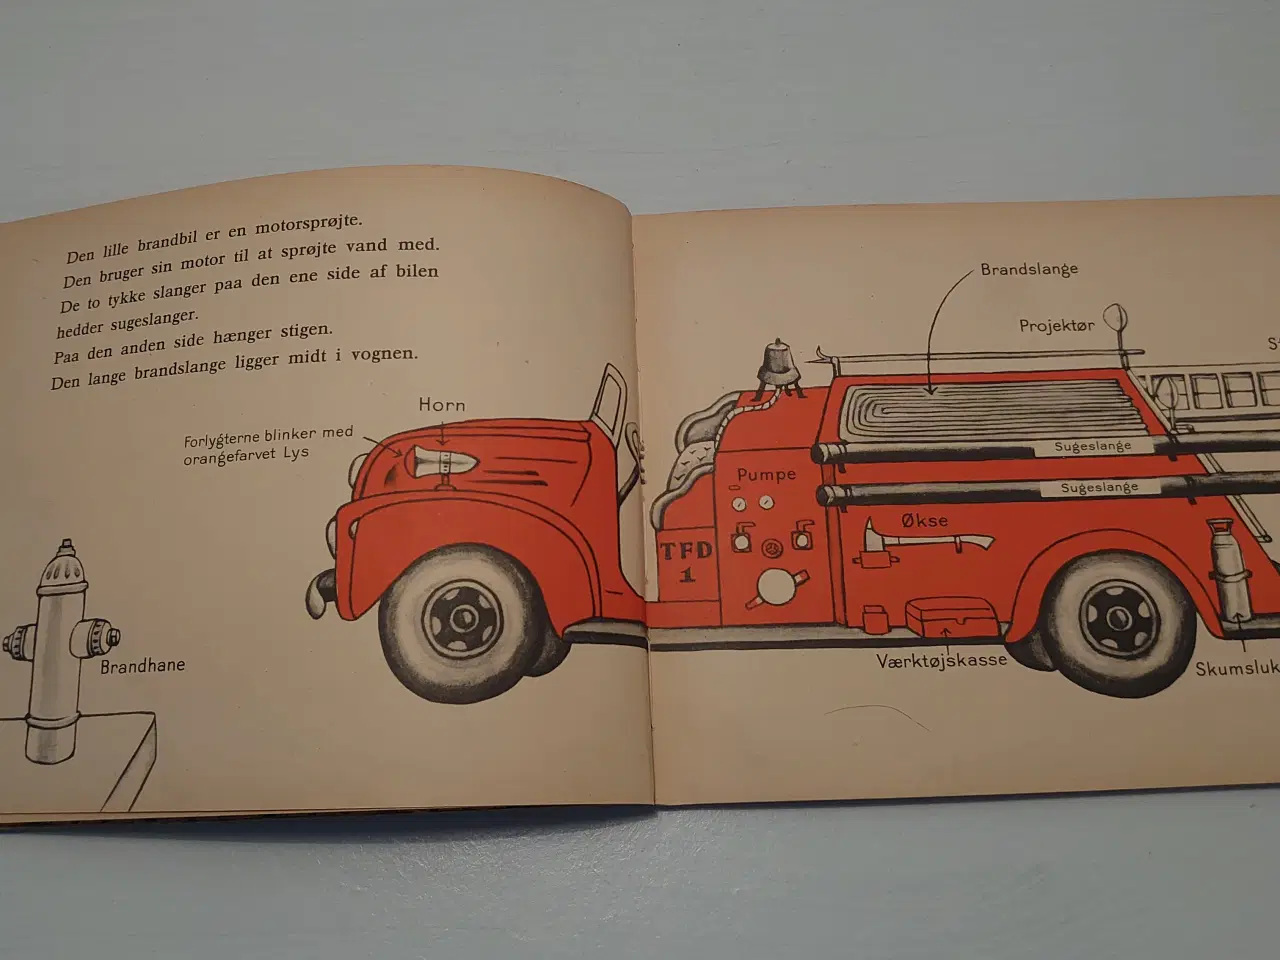 Den lille brandbil er en motorsprøjte.
Den bruger sin motor til at sprøjte vand med.
De to tykke slanger paa den ene side af bilen
hedder sugeslanger.
Paa den anden side hænger stigen.
Den lange brandslange ligger midt i vognen.
Horn
Forlygterne blinker med
orangefarvet Lys
Brandhane
Brandslange
Projektør
Sugeslange
Sugeslange
Pumpe
Økse
TFD
1
Værktøjskasse
Skumsluk